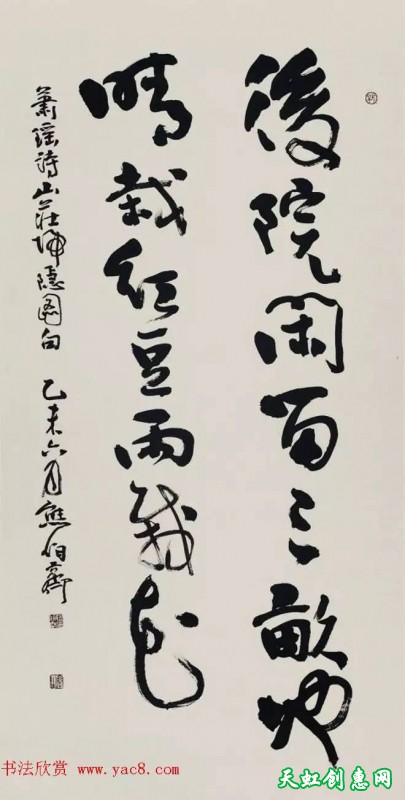 後院閑留三畝地
晴栽紅豆雨栽花
蕭瑶诗山莊归隱圖句 乙未六月熊伯齊
书法欣赏 www.yac8.com
天虹创惠网